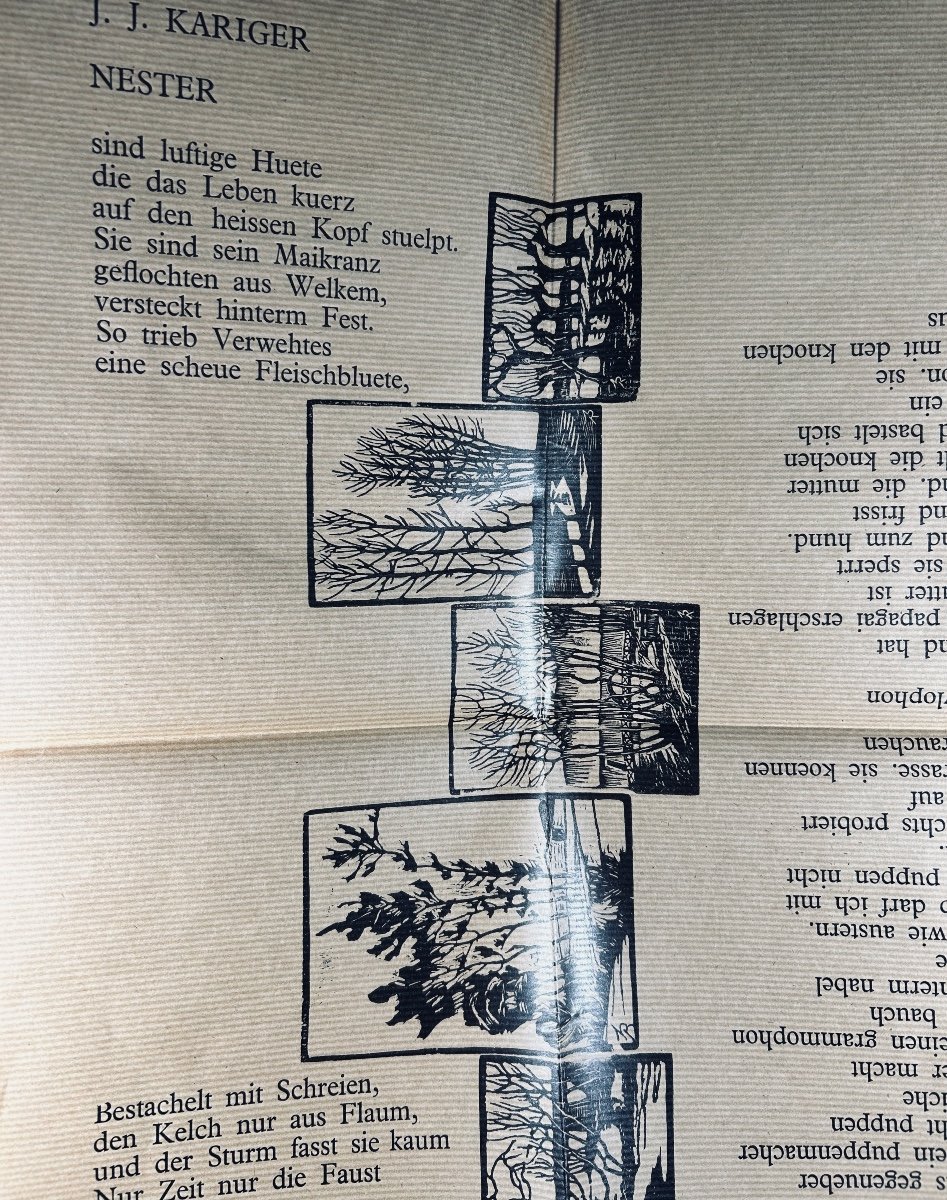 J. J. KARIGER
NESTER
sind luftige Huete
die das Leben kuerz
auf den heissen Kopf stuelpt.
Sie sind sein Maikranz
geflochten aus Welkem,
versteckt hinterm Fest.
So trieb Verwehtes
eine scheue Fleischbluete,
Bestachelt mit Schreien,
den Kelch nur aus Flaum,
und der Sturm fasst sie kaum
Nur Zeit nur die Faust
gegenueber
ein puppenmacher
puppen
macht
einen grammophon
bauch
nabel
wie austern.
darf ich mit
puppen nicht
probiert
auf
sie koennen
hat
papagai erschlagen
ist
sie sperrt
zum hund.
frisst
die mutter
die knochen
bastelt sich
ein
sie
mit den knochen